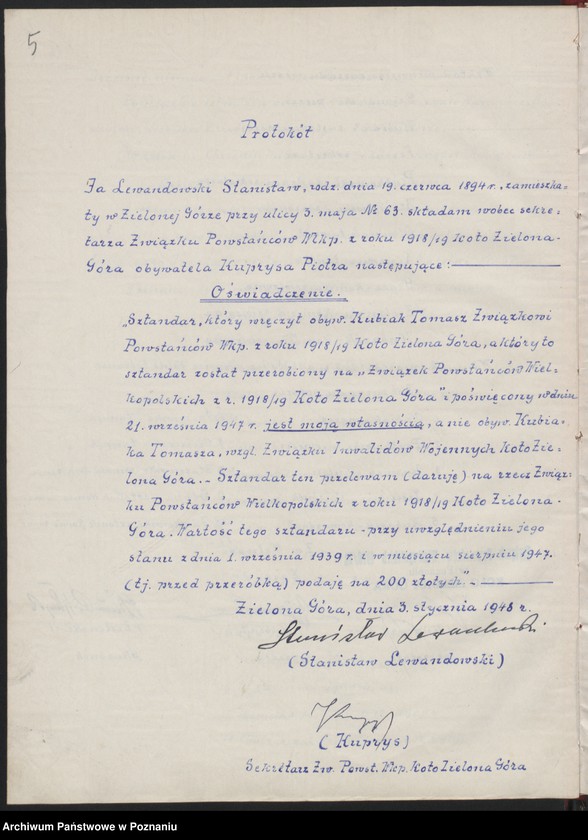 5
Protokół
Ja Lewandowski Stanisław, rodz. dnia 19. czerwca 1894 r., zamieszka=
ły w Zielonej Górze przy ulicy 3. maja № 63. składam wobec sekre=
tarza Związku Powstańców Wkp. z roku 1918/19 Koło Zielona-
Góra obywatela Kuprysa Piotra następujące:
Oświadczenie.
„Sztandar, który wręczył obyw. Kubiak Tomasz Związkowi
Powstańców Wkp. z roku 1918/19 Koło Zielona Góra, a który to
sztandar został przerobiony na „Związek Powstańców Wiel=
kopolskich z r. 1918/19 Koło Zielona Góra" i poświęcony w dniu
21. września 1947 r. jest moją własnością, a nie obyw. Kubia=
ka Tomasza, wzgl. Związku Inwalidów Wojennych Koło Zie=
lona Góra. - Sztandar ten przelewam (daruję) na rzecz Związ=
ku Powstańców Wielkopolskich z roku 1918/19 Koło Zielona-
Góra. Wartość tego sztandaru - przy uwzględnieniu jego
stanu z dnia 1. września 1939 r. i w miesiącu sierpniu 1947.
(tj. przed przeróbką) podaję na 200 złotych." -
Zielona Góra, dnia 3. stycznia 1948 r.
Stanisław Lewandowski
(Stanisław Lewandowski)
(Kuprys)
Sekretarz Zw. Powst. Wkp. Koło Zielona Góra
Archiwum Państwowe w Poznaniu